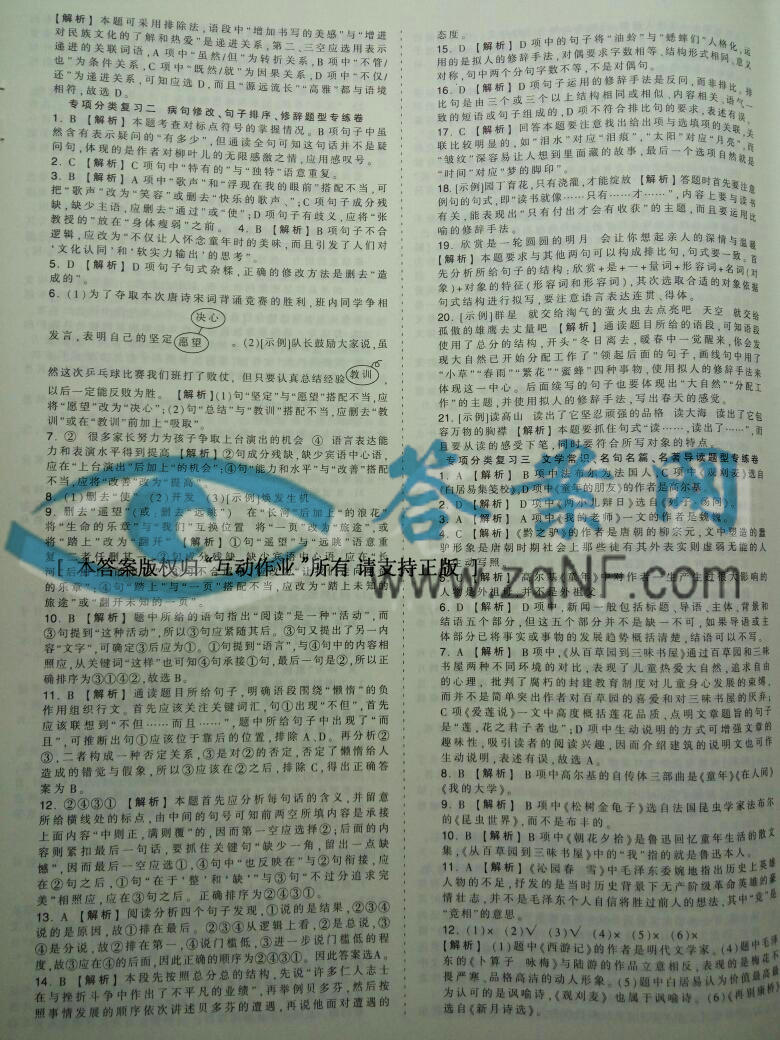 【解析】本题可采用排除法,语段中“增加书写的美感”与“增进
对民族文化的了解和热爱”是递进关系,第二、三空应选用表示
递进的关联词语,A项中“虽然/但”为转折关系,B项中“不管/
也”为条件关系,C项中“既然/就”为因果关系,D项中“不仅/
还”为递进关系,可知应选D,而且“源远流长”“高雅”都与语境
相符,故选D。
专项分类复习二 病句修改、句子排序、修辞题型专练卷
1. B 【解析】本题考查对标点符号的掌握情况。B项句子中虽
然含有表示疑问的“有多少”,但通读全句可知这句话并不是疑
问句,体现的是作者对柳叶儿的无限感激之情,应用感叹号。
2. C 【解析】C项句中“特有的”与“独特”语意重复。
3. B 【解析】A项中“歌声”和“浮现在我的眼前”搭配不当,可
把“歌声”改为“笑容”或删去“快乐的歌声、”;C项句子成分残
缺,缺少主语,应删去“通过”或“使”;D项句子有歧义,应将“张
教授的”放在“身体瘦弱”之前。 4. B 【解析】B项句子不合
逻辑,应改为“不仅让人怀念童年时的美味,而且引发了人们对
‘文化认同’和‘软实力输出’的思考”。
5. D 【解析】D项句子句式杂糅,正确的修改方法是删去“造
成的”。
6. (1)为了夺取本次唐诗宋词背诵竞赛的胜利,班内同学争相
决心
发言,表明自己的坚定愿望。 (2)[示例]队长鼓励大家说,虽
然这次乒乓球比赛我们班打了败仗,但只要认真总结经验教训,
以后一定能反败为胜。 【解析】(1)句“坚定”与“愿望”搭配不当,应
将“愿望”改为“决心”;(2)句“总结”与“教训”搭配不当,应删去“教
训”或在“教训”前加上“吸取”。
7. ② 很多家长努力为孩子争取上台演出的机会 ④ 语言表达能
力和表演水平得到提高 【解析】②句成分残缺,缺少宾语中心语,
应在“上台演出”后加上“的机会”;④句“能力和水平”与“改善”搭配
不当,应将“改善”改为“提高”。
8. (1)删去“使” (2)开发 (3)[示例]焕发生机
9. 删去“遥望”(或:删去“远眺”) 在“长河”后加上“的浪花”
将“生命的乐章”与“我们”互换位置 将“一页”改为“旅途”,或
将“踏上”改为“翻开” 【解析】①句“遥望”与“远眺”语意重
[ 本答案版权归“互动作业”所有,请支持正版 ]
旅途”或“翻开未知的一页”。
10. B 【解析】题中所给的语句指出“阅读”是一种“活动”,而
③句提到“这种活动”,所以③句应紧随其后。③句又提出了另一内
容“文字”,可确定③后应为①。①句提到“语言”,与④句中的内容相
照应,从关键词“这样”也可知④句承接①句,最后一句是②,所以正
确排序为③①④②,故选B。
11. B 【解析】通读题目所给句子,明确语段围绕“懒惰”的负
作用组织行文。首先应该关注关键词汇,句①出现“不但”,首先
应该联想到“不但……而且……”,题中所给句子中出现了“而
且”,可推断出句①应该位于靠后的位置,排除A、D。再分析②
③,二者构成一种否定关系,③是对②的否定,否定了懒惰给人
造成的错觉与假象,所以③应该在②之后,排除C,得出正确答
案为B。
12. ②④③① 【解析】本题首先应分析每句话的含义,并留意
所给横线处的标点,由中间的句号可知前两空所填内容是承接
上面内容“中则正,满则覆”的,因而第一空应选择②;后面的内
容则紧扣最后一句话,要抓住关键句“缺少一角,留出一点缺
憾”,因而最后一空应选①,④句中“也反映在”与②句衔接,应
在②句之后,①句“在于‘整’和‘缺’”与③句“不过分追求完
美”相照应,应在③句之后。正确排序为②④③①。
13. A 【解析】阅读分析四个句子发现,①说的是结果,②③④
说的是原因,故①排在最后。②③④从逻辑上看,②是总说,③
④是分说,故②排在第一,④说门槛低,③进一步说门槛低的程
度,故③应在④的后面,因此正确的顺序为②④③①。因此答案选A。
14. B 【解析】本段先按照总分总的结构,先说“许多仁人志士
在与挫折斗争中作出了不平凡的业绩”,再举例贝多芬,然后按
照事情发展的顺序依次讲述贝多芬的遭遇,再说他面对遭遇的
态度。
15. D 【解析】D项中的句子将“油蛉”与“蟋蟀们”人格化,运
用的是拟人的修辞手法,对偶要求字数相等、结构形式相同、意义
对称,句中两个分句字数不等,不是对偶句。
16. D 【解析】D项句子运用的修辞手法是反问,而非排比。排
比句是由三个或三个以上结构相同或相似、内容相关、语气一
致的短语或句子组成的,D项不符合排比句的要求,表述有误。
17. C 【解析】回答本题要注意找出给出项与选填项的关联,关
联比较明显的,如“泪水”对应“泪痕”,“太阳”对应“月亮”。而
“皱纹”深容易让人想到里面藏的故事,最后一个选项自然就是
“时间”对应“梦的脚印”。
18. [示例]园丁育花,只有浇灌,才能绽放 【解析】答题时首先要注意
例句的句式,即“读书就像……只有……才……”,内容上要与读书
有关,能表现出“只有付出才会有收获”的主题,而且要运用比
喻的修辞手法。
19. 欣赏是一轮圆圆的明月 会让你想起亲人的深情与温暖
【解析】本题要求与其他两句可以构成排比句,句式要一致。首
先分析所给句子的结构:欣赏+是+一+量词+形容词+名词(对
象)+对象的特征(形容词和形容词),其次选取合适的对象依据
句式结构进行拟写,要注意语言表达连贯、得体。
20. [示例]群星 就交给淘气的萤火虫去点亮吧 天空 就交给
孤傲的雄鹰去丈量吧 【解析】通读题目所给的语段,可知语段
使用了总分的结构,开头“冬日离去,暖春中一觉醒来,你会发
现大自然已开始分配工作了”领起后面的句子,画线句中用了
“小草”“春雨”“繁花”“蜜蜂”四种事物,使用拟人的修辞手法来
体现这一中心。后面续写的句子也要体现出“大自然”“分配工
作”的主题,并使用拟人的修辞手法,写出春天的感觉。
21. [示例]读高山 读出了它坚忍顽强的品格 读大海 读出了它包
容万物的胸襟 【解析】本题依托句式“读……,读出了……”,而
且要从读的感受下笔,同时要符合所写对象的特点。
专项分类复习三 文学常识、名句名篇、名著导读题型专练卷
1. A 【解析】B项中法布尔为法国人,C项中《观刈麦》选自
《白居易集笺校》,D项中《童年的朋友》的作者是高尔基。
2. D 【解析】D项中《两小儿辩日》选自《列子·汤问》。
3. A 【解析】A项中《我的老师》一文的作者是魏巍。
4. C 【解析】《黔之驴》的作者是唐朝的柳宗元,文中塑造的蠢
驴形象是唐朝时期社会上那些徒有其外表实则虚弱无能的人
人物是外祖母,并不是外祖父。
6. D 【解析】D项中,新闻一般包括标题、导语、主体、背景和
结语五个部分,但这五个部分并不是缺一不可,如果导语或主
体部分已将事实或事物的发展趋势概括清楚,结语可以不写。
7. A 【解析】B项中,《从百草园到三味书屋》通过百草园和三味
书屋两种不同环境的对比,表现了儿童热爱大自然,追求自由
的心理,批判了腐朽的封建教育制度对儿童身心发展的束缚,
而并不是简单突出作者对百草园的喜爱和对三味书屋的厌弃;
C项《爱莲说》一文中高度概括莲花品质,点明文章题旨的句子
是“莲,花之君子者也”;D项中生动说明的方式可增强文章的
趣味性,吸引读者的阅读兴趣,因而介绍建筑的说明文也可作
生动说明,表述有误,故选A。
8. B 【解析】B项中高尔基的自传体三部曲是《童年》《在人间》
《我的大学》。
9. B 【解析】B项中《松树金龟子》选自法国昆虫学家法布尔
的《昆虫世界》,而不是布丰的。
10. B 【解析】B项中《朝花夕拾》是鲁迅回忆童年生活的散文
集,《从百草园到三味书屋》中的“我”指的就是鲁迅本人。
11. A 【解析】《沁园春 雪》中毛泽东委婉地指出历史上英雄
人物的不足,抒发的是当时历史背景下无产阶级革命英雄的豪
情壮志,并不是毛泽东个人自信将胜过前人的想法,其中“竞”是
“竞相”的意思。
12. (1)× (2)√ (3)√ (4)× (5)× (6)×
【解析】(1)题中《西游记》的作者是明代文学家。(4)题中毛泽
东的《卜算子 咏梅》与陆游的作品立意相反,表现的是梅花不
畏严寒、品格高洁的动人形象。(5)题中白居易认为价值最高最
为认可的是讽喻诗,《观刈麦》也属于讽喻诗。(6)《再别康桥》
选自《新月诗选》。
答案网
www.zqNF.com